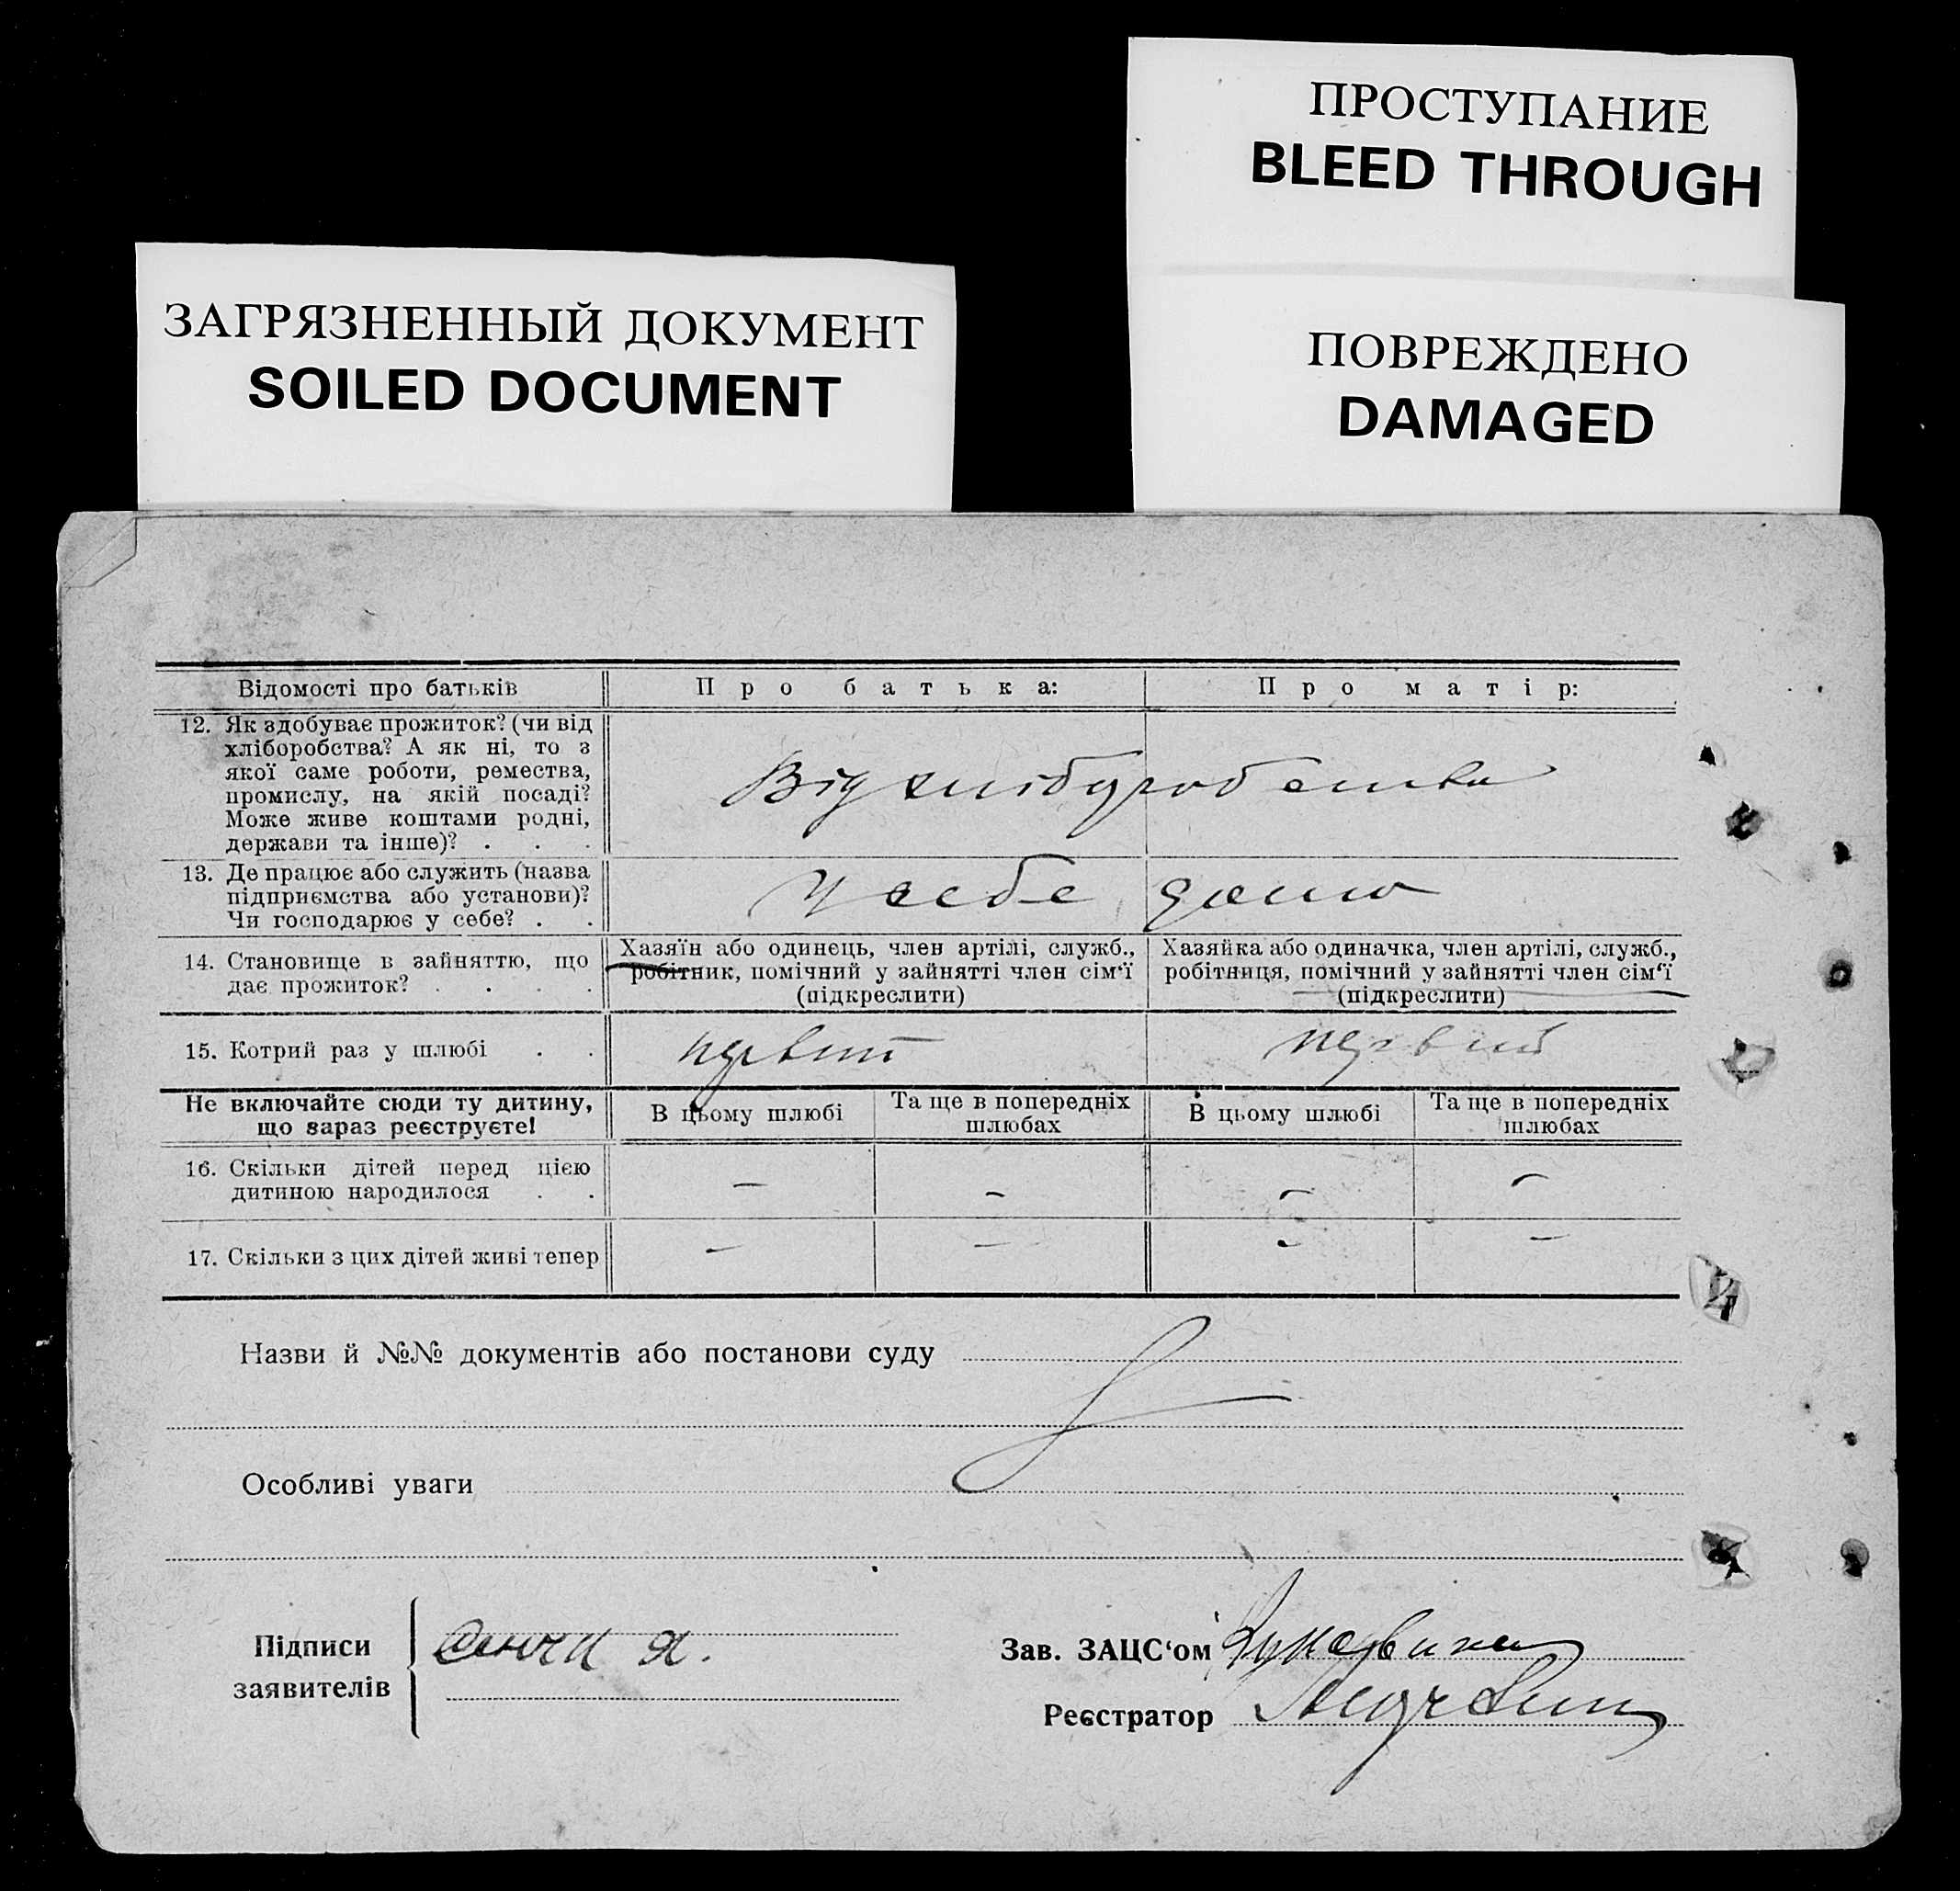 ПРОСТУПАНИЕ
BLEED THROUGH
ЗАГРЯЗНЕННЫЙ ДОКУМЕНТ
SOILED DOCUMENT
ПОВРЕЖДЕНО
DAMAGED
Відомості про батьків
Про батька:
Про матір:
12. Як здобуває прожиток? (чи від
хліборобства? А як ні, то з
якої саме роботи, ремества,
промислу, на якій посаді?
Може живе коштами родні,
держави та інше)? . . .
Від хлібуробства
13. Де працює або служить (назва
підприємства або установи)?
Чи господарює у себе? . .
У себе дома
14. Становище в зайняттю, що
дає прожиток? . . . .
Хазяїн або одинець, член артілі, служб.,
робітник, помічний у зайнятті член сім‘ї
(підкреслити)
Хазяйка або одиначка, член артілі, служб.,
робітниця, помічний у зайнятті член сім‘ї
(підкреслити)
15. Котрий раз у шлюбі . .
первий
первий
Не включайте сюди ту дитину,
що зараз реєструєте!
В цьому шлюбі
Та ще в попередніх
шлюбах
В цьому шлюбі
Та ще в попередніх
шлюбах
16. Скільки дітей перед цією
дитиною народилося . .
— — — —
17. Скільки з цих дітей живі тепер
— — — —
Назви й №№ документів або постанови суду
Особливі уваги
Підписи
заявителів
Я.
Зав. ЗАЦС‘ом
Реєстратор